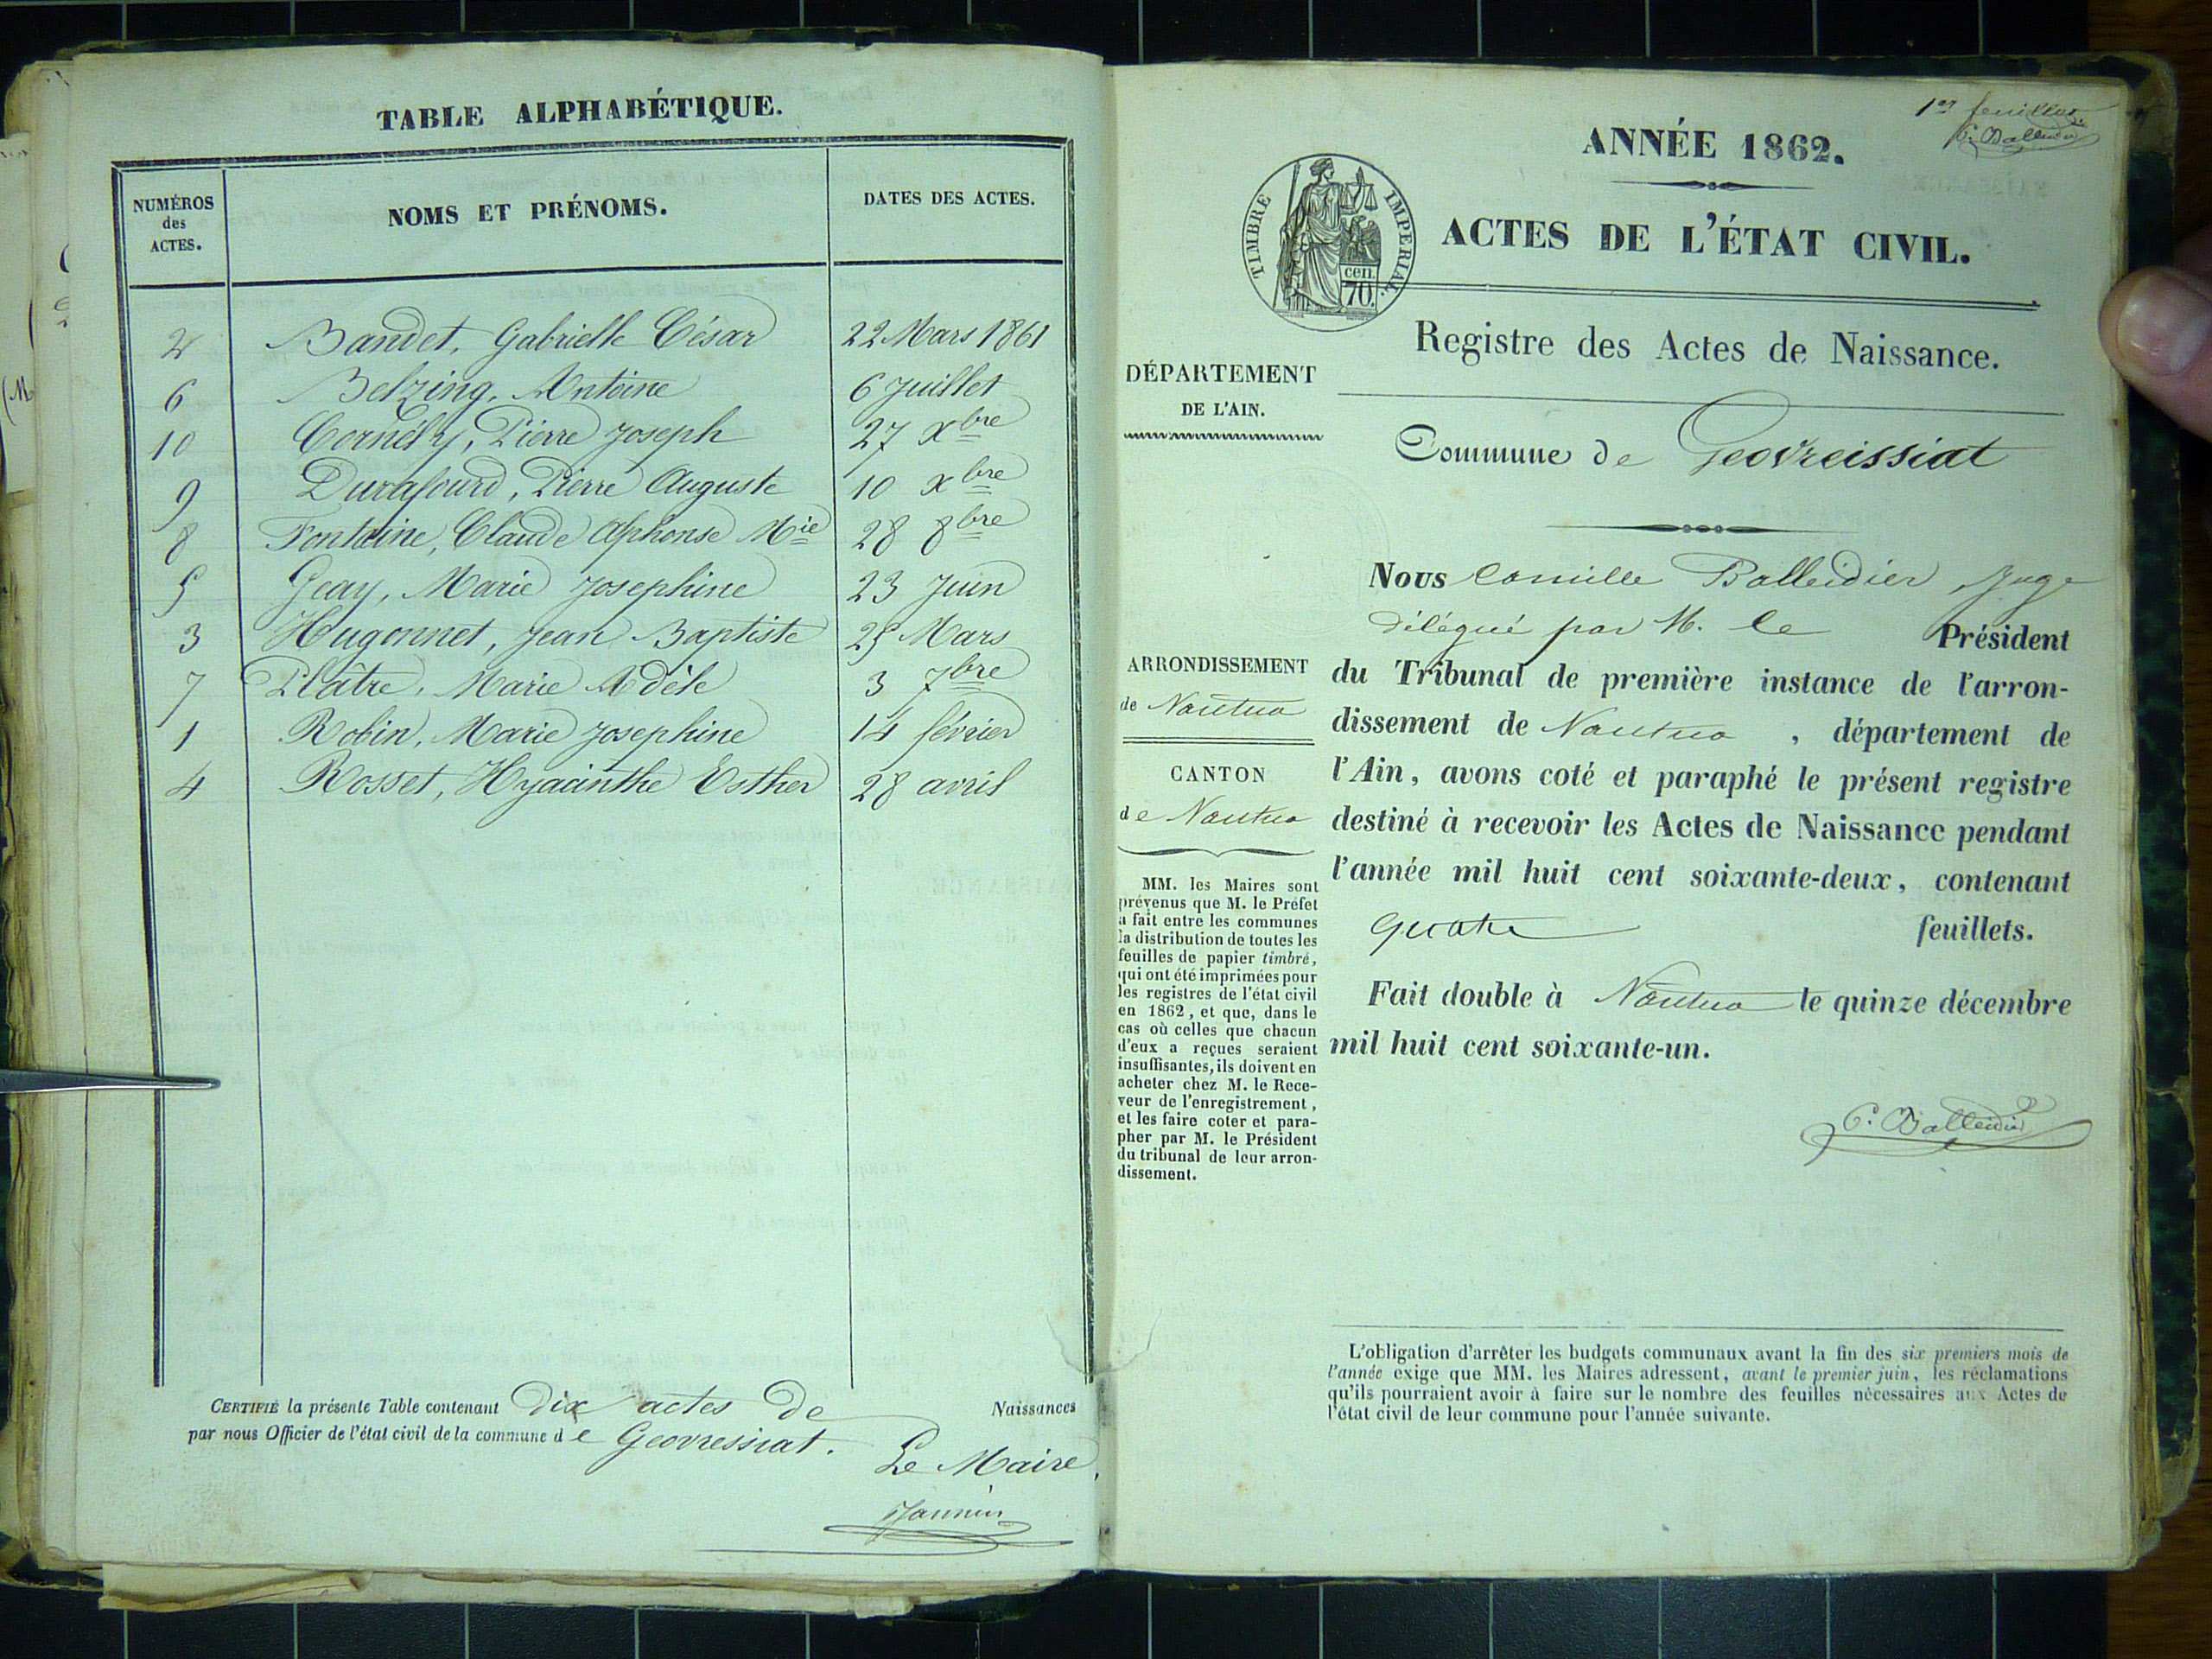 TABLE ALPHABÉTIQUE.
NUMÉROS des ACTES. NOMS ET PRÉNOMS. DATES DES ACTES.
2 Bandet, Gabrielle César 22 Mars 1861
6 Belzing, Antoine 6 Juillet
10 Cornélly, Pierre Joseph 27 Xbre
9 Durafourd, Pierre Auguste 10 Xbre
8 Fontaine, Claude Alphonse Mie 28 8bre
5 Geay, Marie Josephine 23 Juin
3 Hugonnet, Jean Baptiste 25 Mars
7 Plâtre, Marie Adèle 3 7bre
1 Robin, Marie Josephine 14 février
4 Rosset, Hyacinthe Esther 28 avril
CERTIFIÉ la présente Table contenant dix actes de Naissances
par nous Officier de l'état civil de la commune de Geovressiat.
Le Maire,
Jannin
1er feuillet
C. Balleidier
ANNÉE 1862.
TIMBRE IMPERIAL.
cen.
70.
ACTES DE L'ÉTAT CIVIL.
Registre des Actes de Naissance.
DÉPARTEMENT
DE L'AIN.
Commune de Geovreissiat
ARRONDISSEMENT
de Nantua
CANTON
de Nantua
MM. les Maires sont
prévenus que M. le Préfet
a fait entre les communes
la distribution de toutes les
feuilles de papier timbré,
qui ont été imprimées pour
les registres de l'état civil
en 1862, et que, dans le
cas où celles que chacun
d'eux a reçues seraient
insuffisantes, ils doivent en
acheter chez M. le Rece-
veur de l'enregistrement,
et les faire coter et para-
pher par M. le Président
du tribunal de leur arron-
dissement.
Nous Camille Balleidier, Juge
délégué par M. le Président
du Tribunal de première instance de l'arron-
dissement de Nantua, département de
l'Ain, avons coté et paraphé le présent registre
destiné à recevoir les Actes de Naissance pendant
l'année mil huit cent soixante-deux, contenant
quatre feuillets.
Fait double à Nantua le quinze décembre
mil huit cent soixante-un.
C. Balleidier
L'obligation d'arrêter les budgets communaux avant la fin des six premiers mois de
l'année exige que MM. les Maires adressent, avant le premier juin, les réclamations
qu'ils pourraient avoir à faire sur le nombre des feuilles nécessaires aux Actes de
l'état civil de leur commune pour l'année suivante.